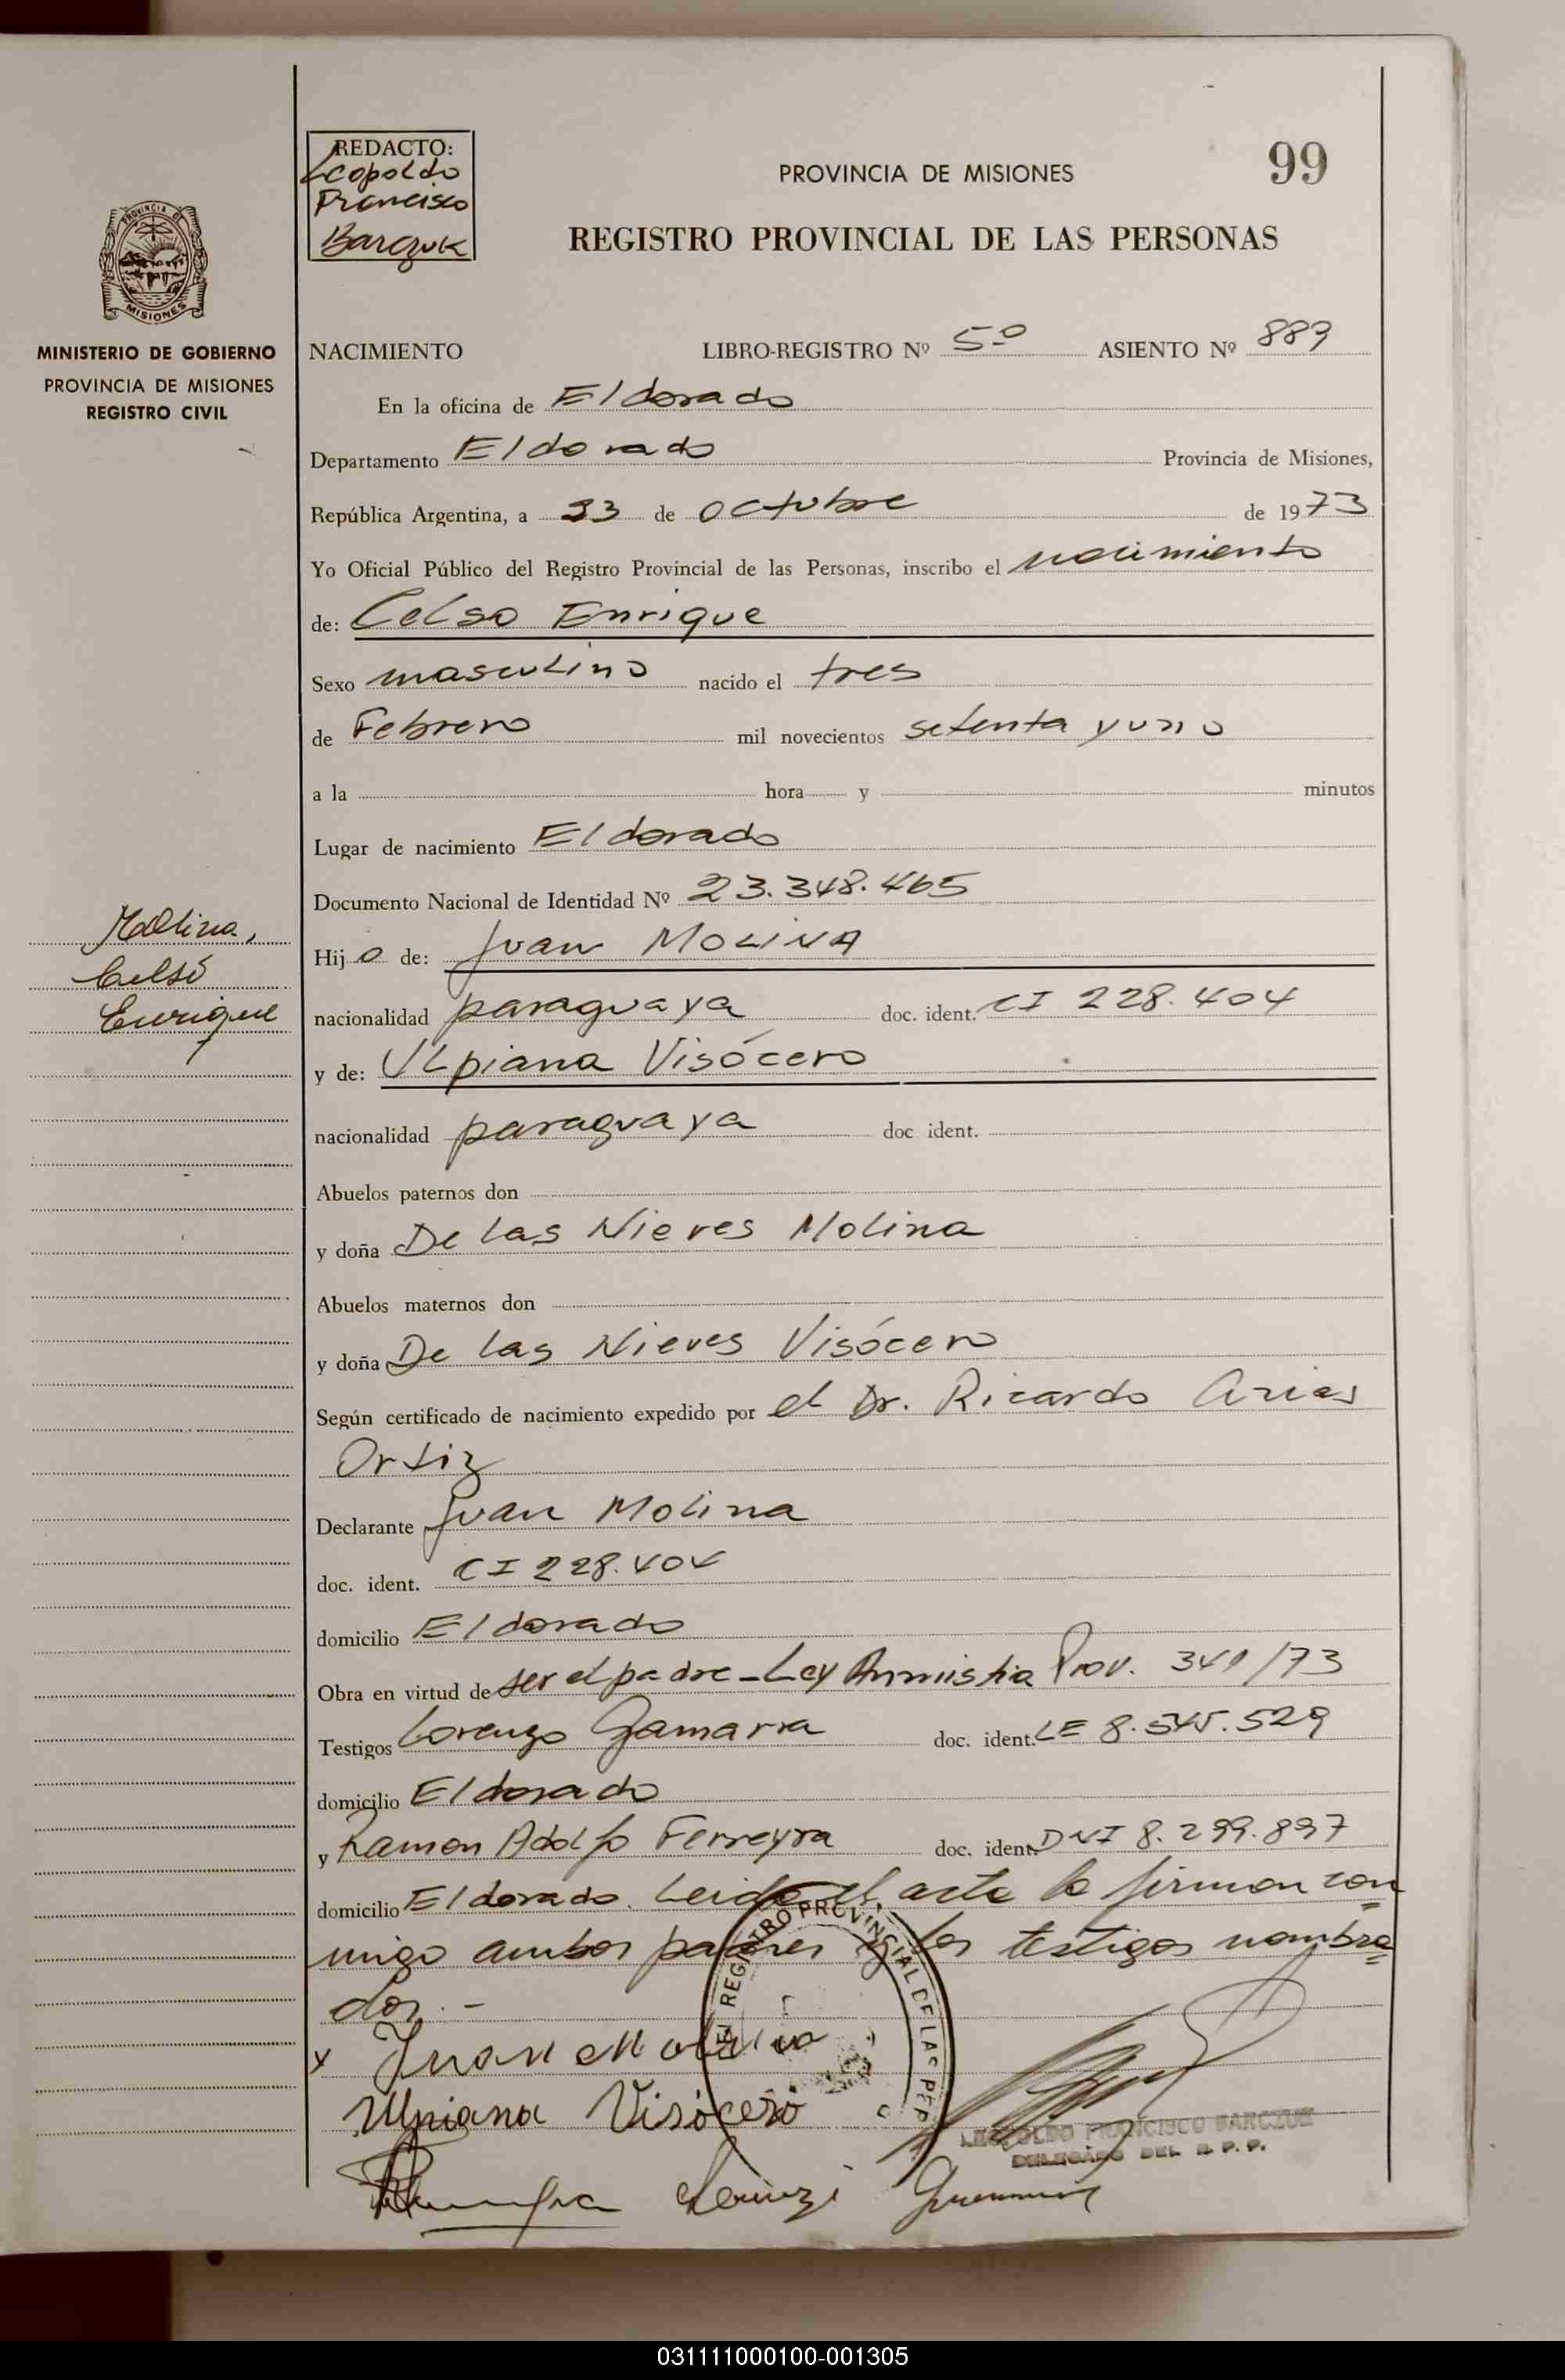 REDACTO:
Leopoldo
Francisco
Barczuk
PROVINCIA DE MISIONES
99
REGISTRO PROVINCIAL DE LAS PERSONAS
PROVINCIA DE
MISIONES
MINISTERIO DE GOBIERNO
PROVINCIA DE MISIONES
REGISTRO CIVIL
NACIMIENTO LIBRO-REGISTRO Nº 5º ASIENTO Nº 889
En la oficina de Eldorado
Departamento Eldorado Provincia de Misiones,
República Argentina, a 23 de octubre de 1973
Yo Oficial Público del Registro Provincial de las Personas, inscribo el nacimiento
de: Celso Enrique
Sexo masculino nacido el tres
de Febrero mil novecientos setenta y uno
a la hora y minutos
Lugar de nacimiento Eldorado
Documento Nacional de Identidad Nº 23.348.465
Molina,
Celso
Enrique
Hijo de: Juan MOLINA
nacionalidad paraguaya doc. ident. CI 228.404
y de: Ulpiana Visócero
nacionalidad paraguaya doc ident.
Abuelos paternos don
y doña De las Nieves Molina
Abuelos maternos don
y doña De las Nieves Visócero
Según certificado de nacimiento expedido por el Dr. Ricardo Arias
Ortiz
Declarante Juan Molina
doc. ident. CI 228.404
domicilio Eldorado
Obra en virtud de ser el padre - Ley Amnistia Prov. 341/73
Testigos Lorenzo Gamarra doc. ident. LE 8.545.529
domicilio Eldorado
y Ramon Adolfo Ferreyra doc. ident. DNI 8.299.897
domicilio Eldorado. Leida el acta la firman con
migo ambos padres y los testigos nombra
dos.-
REGISTRO PROVINCIAL DE LAS PER
x Juan Molina
Ulpiana Visócero
LEOPOLDO FRANCISCO BARCZUK
DELEGADO DEL R. P. P.
031111000100-001305